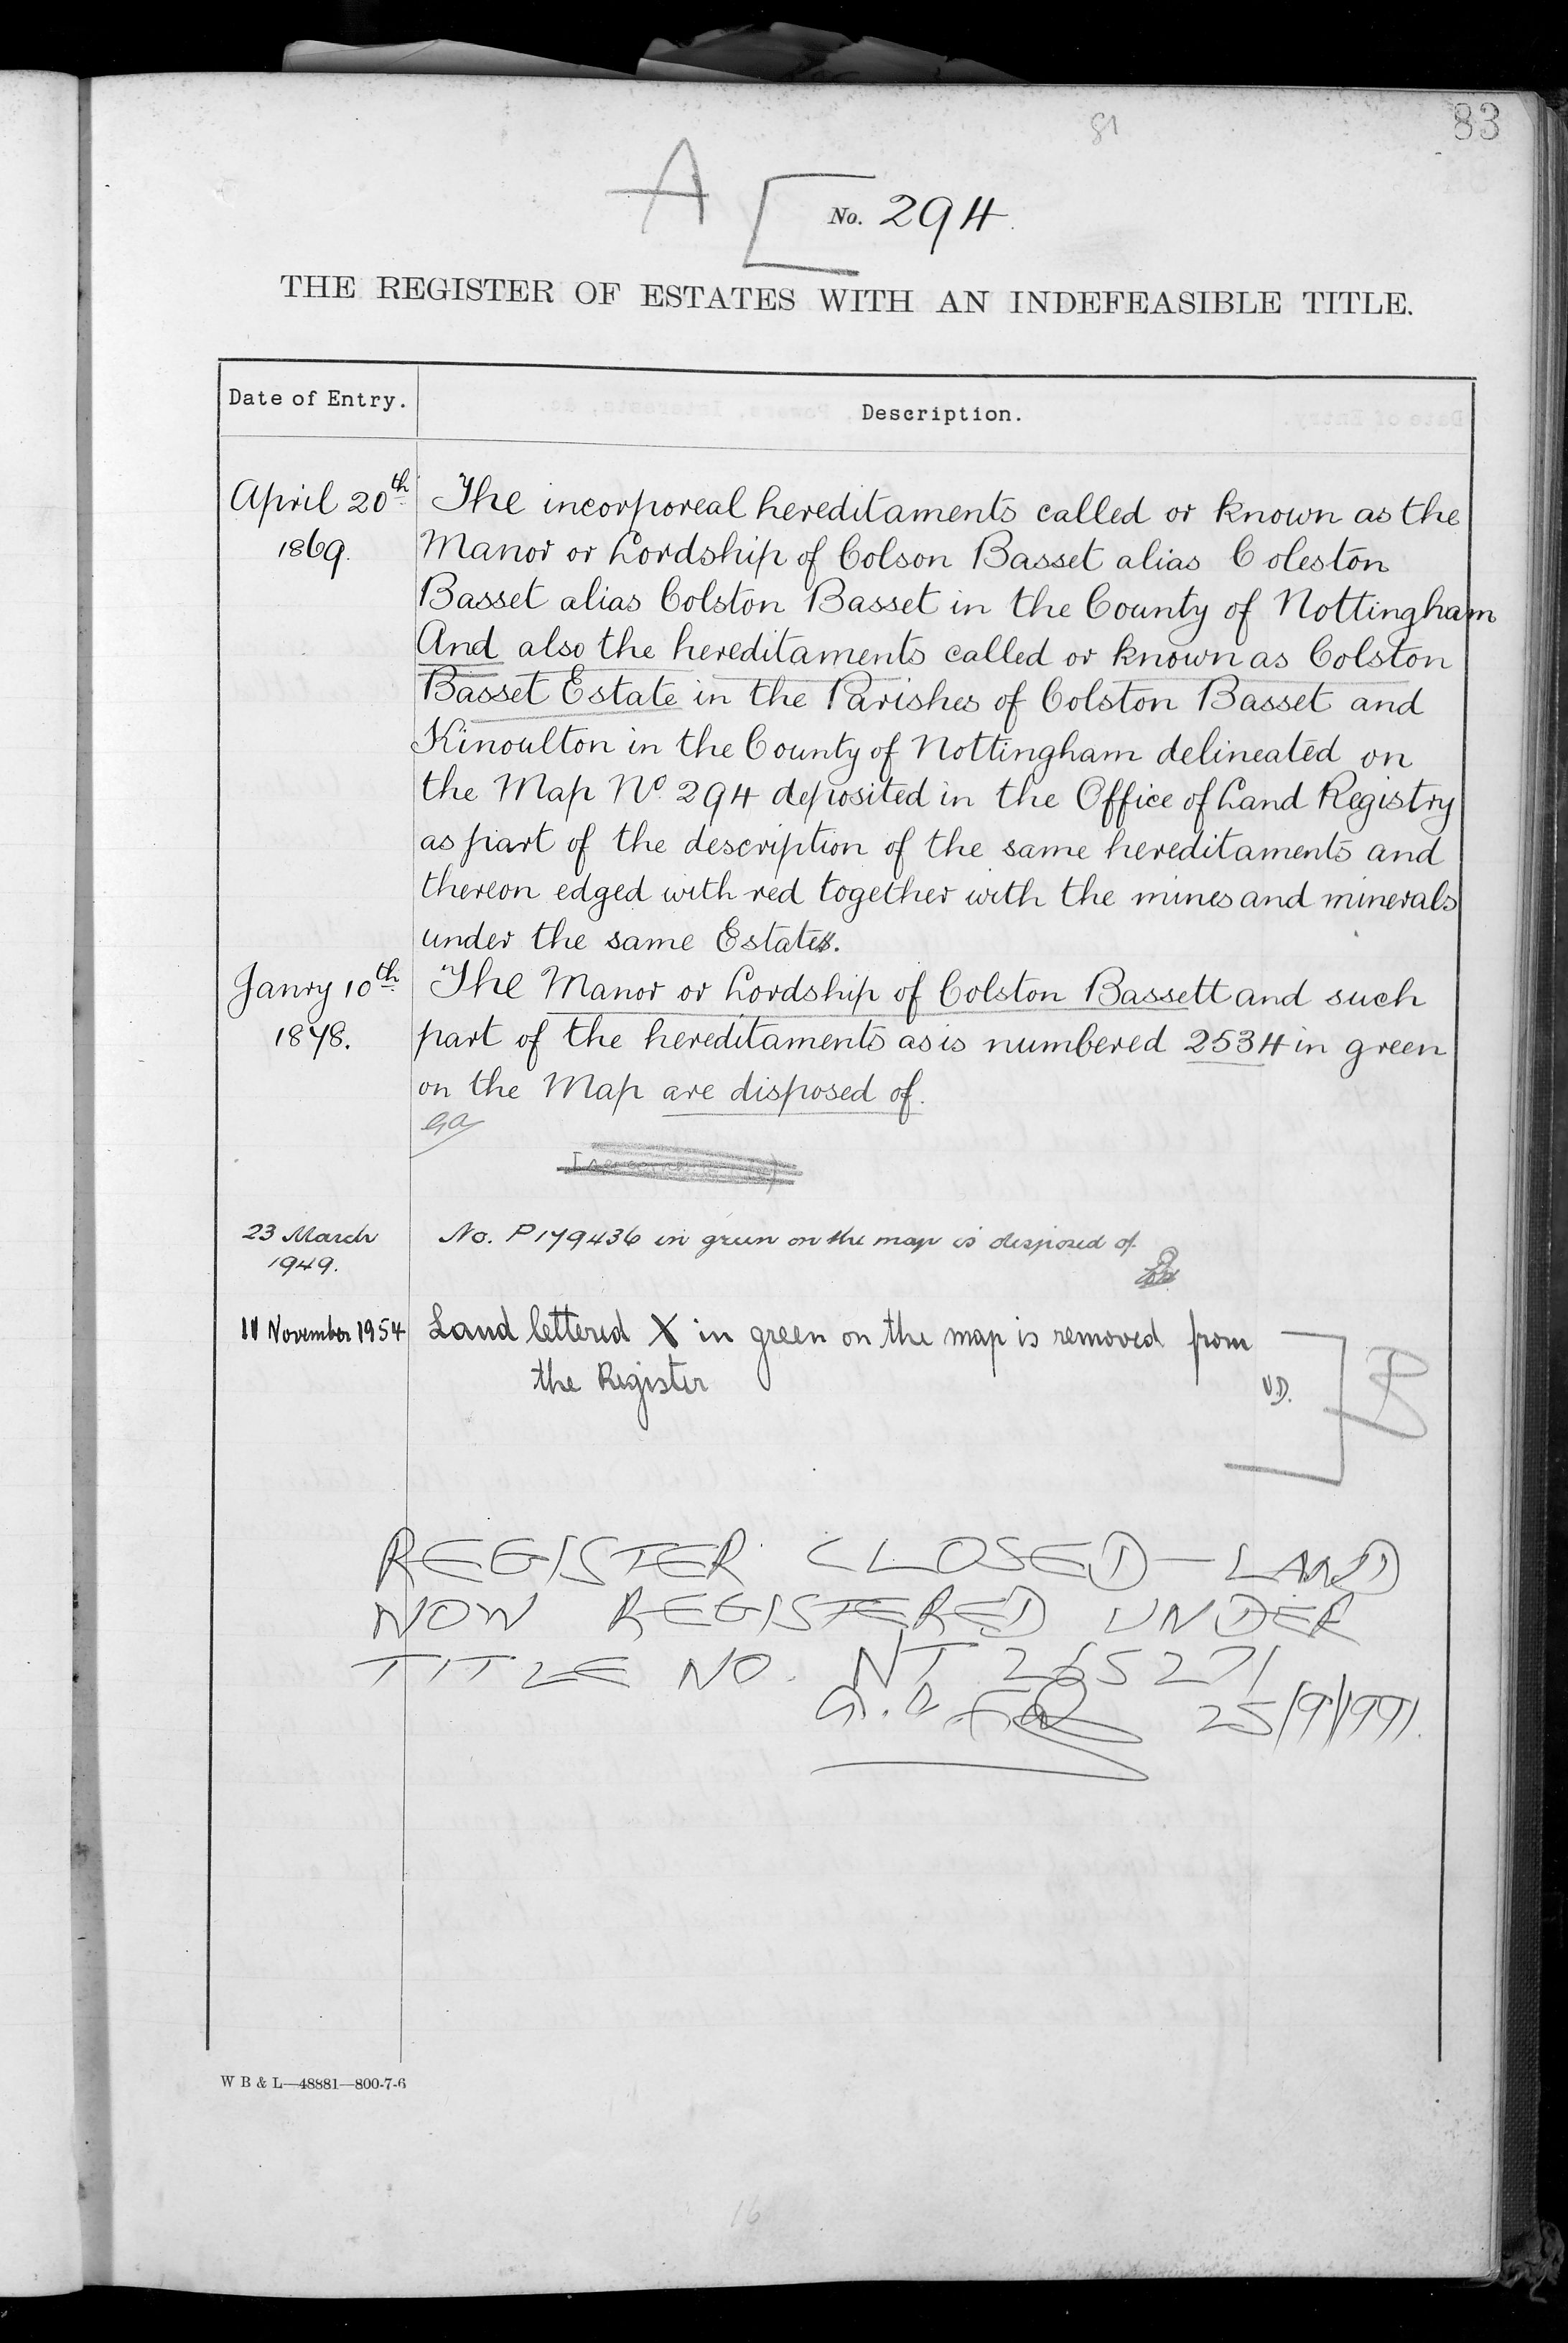 83
81
A
No. 294.
THE REGISTER OF ESTATES WITH AN INDEFEASIBLE TITLE.
Date of Entry.
Description.
April 20th
1869.
The incorporeal hereditaments called or known as the
Manor or Lordship of Colson Basset alias Coleston
Basset alias Colston Basset in the County of Nottingham
And also the hereditaments called or known as Colston
Basset Estate in the Parishes of Colston Basset and
Kinoulton in the County of Nottingham delineated on
the Map No. 294 deposited in the Office of Land Registry
as part of the description of the same hereditaments and
thereon edged with red together with the mines and minerals
under the same Estates.
Janry 10th
1878.
The Manor or Lordship of Colston Bassett and such
part of the hereditaments as is numbered 2534 in green
on the Map are disposed of.
23 March
1949.
No. P179436 in green on the map is disposed of.
11 November 1954
Land lettered X in green on the map is removed from
the Register
V.D.
B
REGISTER CLOSED - LAND
NOW REGISTERED UNDER
TITLE NO. NT 265271
25/9/1991.
W B & L—48881—800-7-6
16